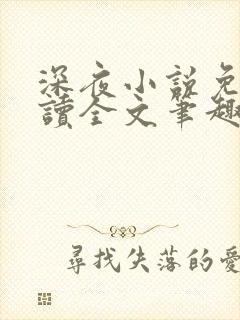 深夜小說免
讀全文筆趣
尋找失落的愛